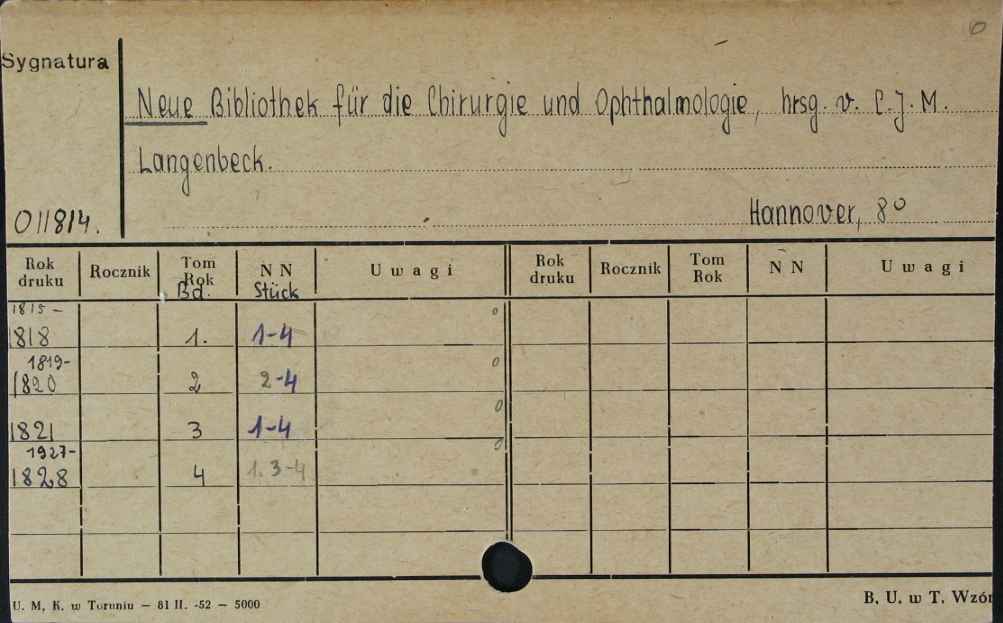 0
Sygnatura
Neue Bibliothek für die Chirurgie und Ophthalmologie, hrsg. v. C. J. M.
Langenbeck.
Hannover, 8º
011814.
Rok druku Rocznik Tom Rok Bd. N N Stück Uwagi Rok druku Rocznik Tom Rok N N Uwagi
1815-
1818 1. 1-4 0
1819-
1820 2 2-4 0
1821 3 1-4 0
1927-
1828 4 1. 3-4 0
U. M. K. w Toruniu — 81 II. -52 — 5000
B. U. w T. Wzór